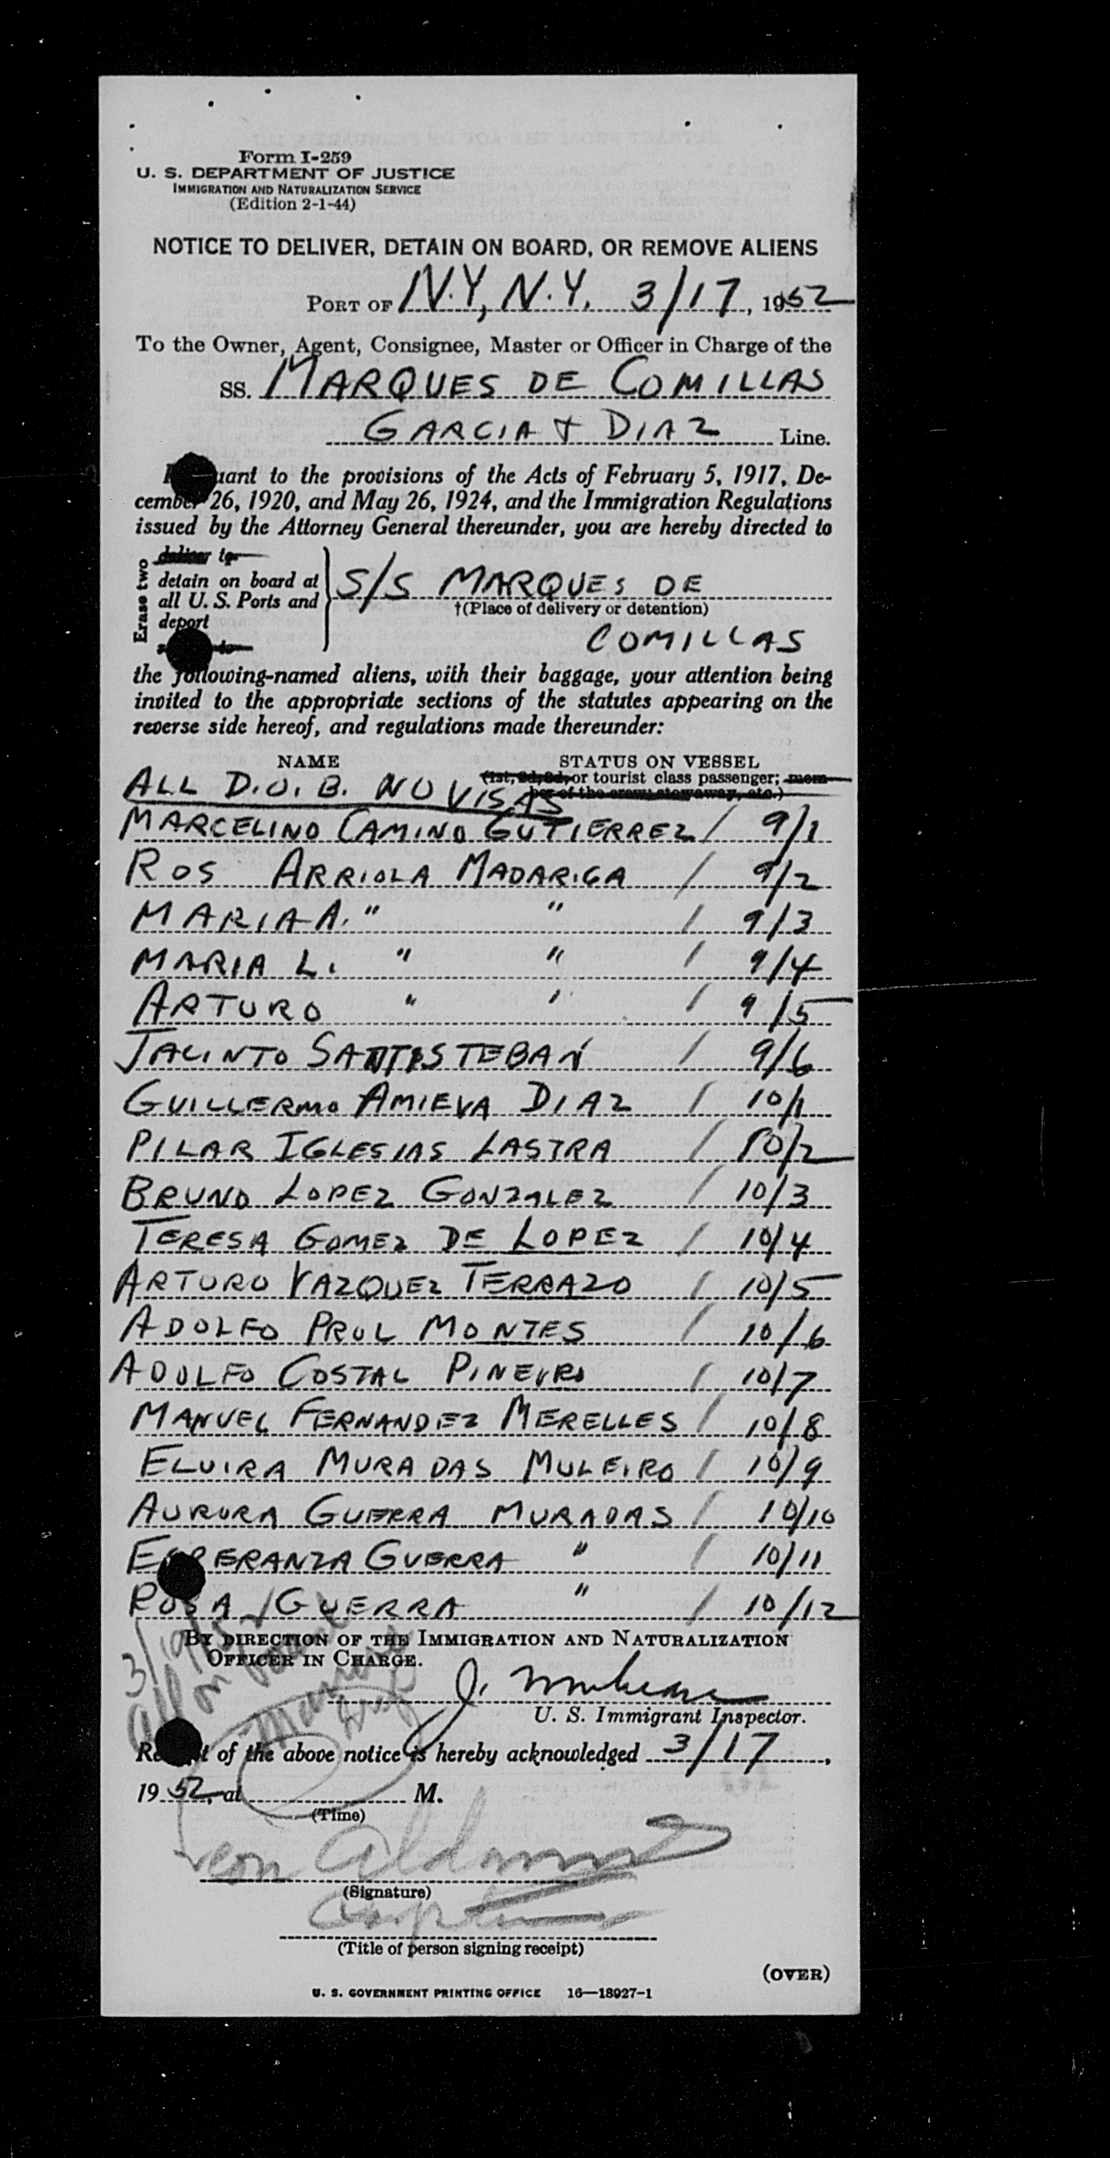 Form I-259
U. S. DEPARTMENT OF JUSTICE
IMMIGRATION AND NATURALIZATION SERVICE
(Edition 2-1-44)
NOTICE TO DELIVER, DETAIN ON BOARD, OR REMOVE ALIENS
PORT OF N.Y, N.Y. 3/17, 1952
To the Owner, Agent, Consignee, Master or Officer in Charge of the
SS. MARQUES DE COMILLAS
GARCIA & DIAZ Line.
uant to the provisions of the Acts of February 5, 1917, De-
cember 26, 1920, and May 26, 1924, and the Immigration Regulations
issued by the Attorney General thereunder, you are hereby directed to
Erase two
deliver to
detain on board at
all U. S. Ports and
deport
S/S MARQUES DE
†(Place of delivery or detention)
COMILLAS
the following-named aliens, with their baggage, your attention being
invited to the appropriate sections of the statutes appearing on the
reverse side hereof, and regulations made thereunder:
NAME STATUS ON VESSEL
(1st, 2d, 3d, or tourist class passenger; mem-
ber of the crew, stowaway, etc.)
ALL D.O.B. NO VISAS
MARCELINO CAMINO GUTIERREZ / 9/1
ROS ARRIOLA MADARIGA / 9/2
MARIA A. " " / 9/3
MARIA L. " " / 9/4
ARTURO " " / 9/5
JACINTO SANTISTEBAN / 9/6
GUILLERMO AMIEVA DIAZ / 10/1
PILAR IGLESIAS LASTRA / 10/2
BRUNO LOPEZ GONZALEZ / 10/3
TERESA GOMEZ DE LOPEZ / 10/4
ARTURO VAZQUEZ TERRAZO / 10/5
ADOLFO PROL MONTES / 10/6
ADOLFO COSTAL PINEIRO / 10/7
MANUEL FERNANDEZ MERELLES / 10/8
ELVIRA MURADAS MULEIRO / 10/9
AURORA GUERRA MURADAS / 10/10
ESPERANZA GUERRA " / 10/11
ROSA GUERRA " / 10/12
BY DIRECTION OF THE IMMIGRATION AND NATURALIZATION
OFFICER IN CHARGE.
3/19/52
all on board
J.
U. S. Immigrant Inspector.
of the above notice is hereby acknowledged 3/17,
1952, at M.
(Time)
(Signature)
Captain
(Title of person signing receipt)
(OVER)
U. S. GOVERNMENT PRINTING OFFICE 16—18027-1